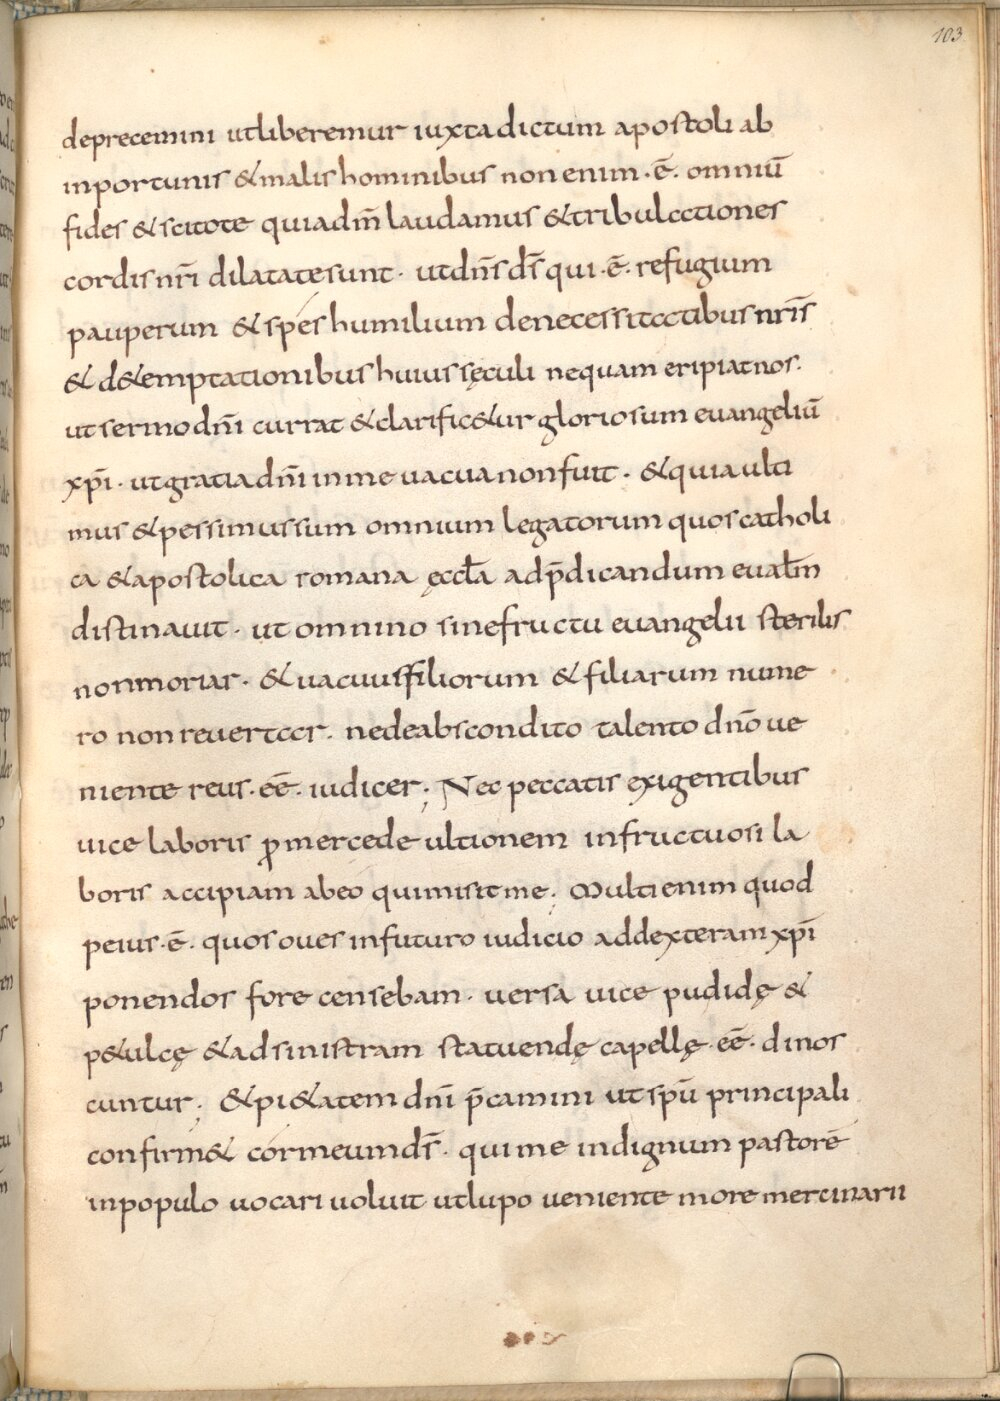 103
deprecemini utliberemur iuxta dictum apostoli ab
inportunis &malis hominibus non enim · ē · omniū
fides & scitote quiadm̄ laudamus &tribulationes
cordis nr̄i dilatate sunt · ut dn̄s ds̄ qui · ē · refugium
pauperum & spes humilium denecessitatibus nr̄is
& d&emptationibus huius sęculi nequam eripiat nos ·
ut sermo dn̄i currat &clarific&ur gloriosum euangeliū
xp̄i · ut gratia dn̄i inme uacua nonfuit · &quia ulti
mus &pessimus sum omnium legatorum quos catholi
ca &apostolica romana ęccła adp̄dicandum euałm
distinauit · ut omnino sinefructu euangelii sterilis
nonmoriar · & uacuus filiorum & filiarum nume
ro non reuertar · nedeabscondito talento dn̄o ue
niente reus · eē · iudicer ; Nec peccatis exigentibus
uice laboris ꝓmercede ultionem infructuosi la
boris accipiam abeo quimisit me ; Multi enim quod
peius · ē · quos oues infuturo iudicio addexteram xp̄i
ponendos fore censebam · uersa uice pudidę &
p&ulcę &adsinistram statuendę capellę · eē · dinos
cuntur ; &pi&atem dn̄i p̄camini ut spū principali
confirm& cor meum ds̄ · qui me indignum pastorē
inpopulo uocari uoluit ut lupo ueniente more mercinarii